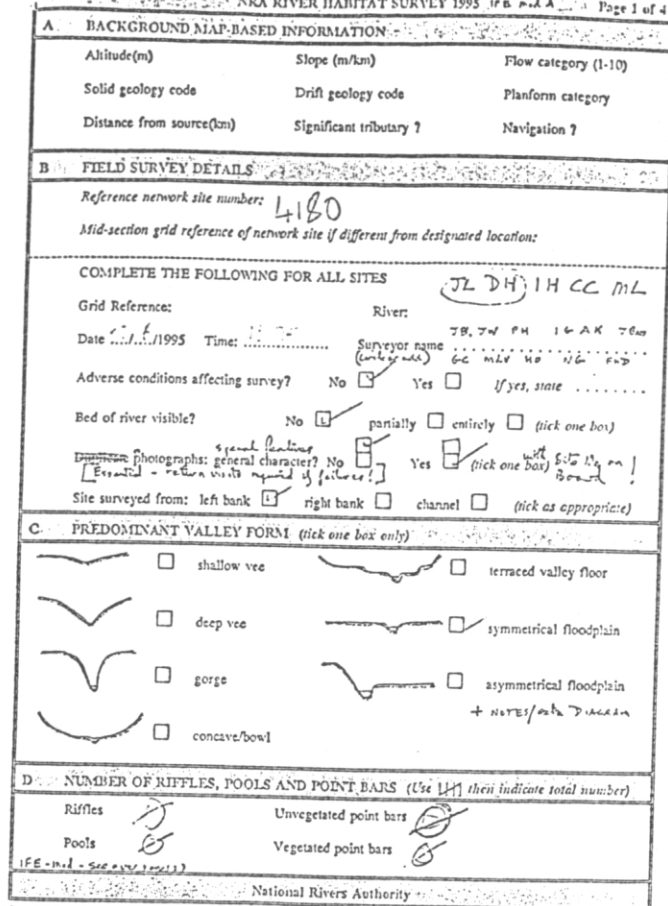 NRA RIVER HABITAT SURVEY 1995 IFE mod A Page 1 of 4
A BACKGROUND MAP-BASED INFORMATION
Altitude(m) Slope (m/km) Flow category (1-10)
Solid geology code Drift geology code Planform category
Distance from source(km) Significant tributary ? Navigation ?
B FIELD SURVEY DETAILS
Reference network site number: 4180
Mid-section grid reference of network site if different from designated location:
COMPLETE THE FOLLOWING FOR ALL SITES JL DH IH CC ML
Grid Reference: River:
JB, JW PH IG AK
Date /1995 Time: Surveyor name
GC MLV HO NG
Adverse conditions affecting survey? No Yes If yes, state
Bed of river visible? No partially entirely (tick one box)
special features
photographs: general character? No Yes (tick one box) with Site No on Board!
[Essential - return visits required if failures!]
Site surveyed from: left bank right bank channel (tick as appropriate)
C PREDOMINANT VALLEY FORM (tick one box only)
shallow vee terraced valley floor
deep vee symmetrical floodplain
gorge asymmetrical floodplain
+ NOTES/ DIAGRAM
concave/bowl
D NUMBER OF RIFFLES, POOLS AND POINT BARS (Use then indicate total number)
Riffles Unvegetated point bars
Pools Vegetated point bars
IFE-mod - see over
National Rivers Authority